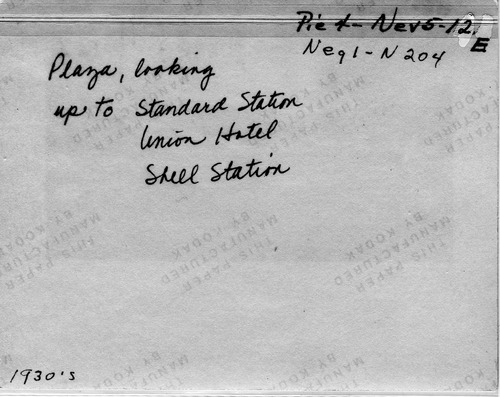 Pic 4- Nev5-12
E
Neg1-N204
Plaza, looking
up to Standard Station
Union Hotel
Shell Station
THIS PAPER
MANUFACTURED
BY KODAK
1930's